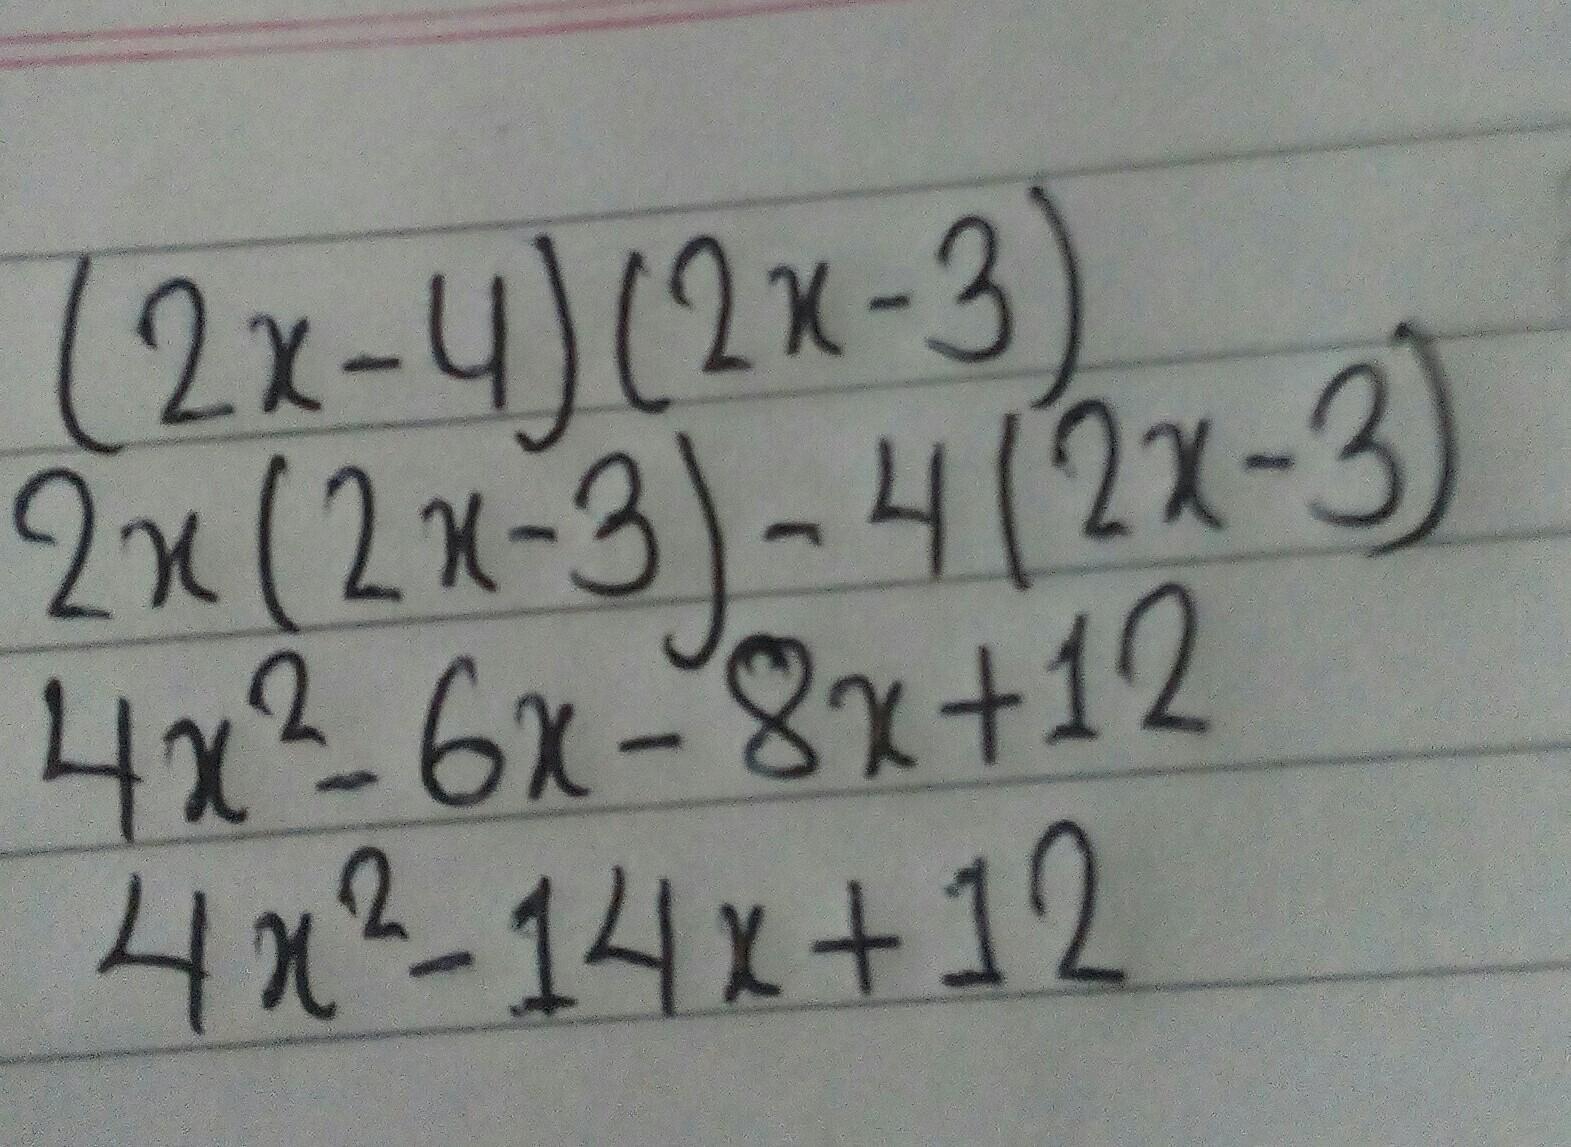 (2x-4)(2x-3)
2x(2x-3)-4(2x-3)
4x²-6x-8x+12
4x²-14x+12